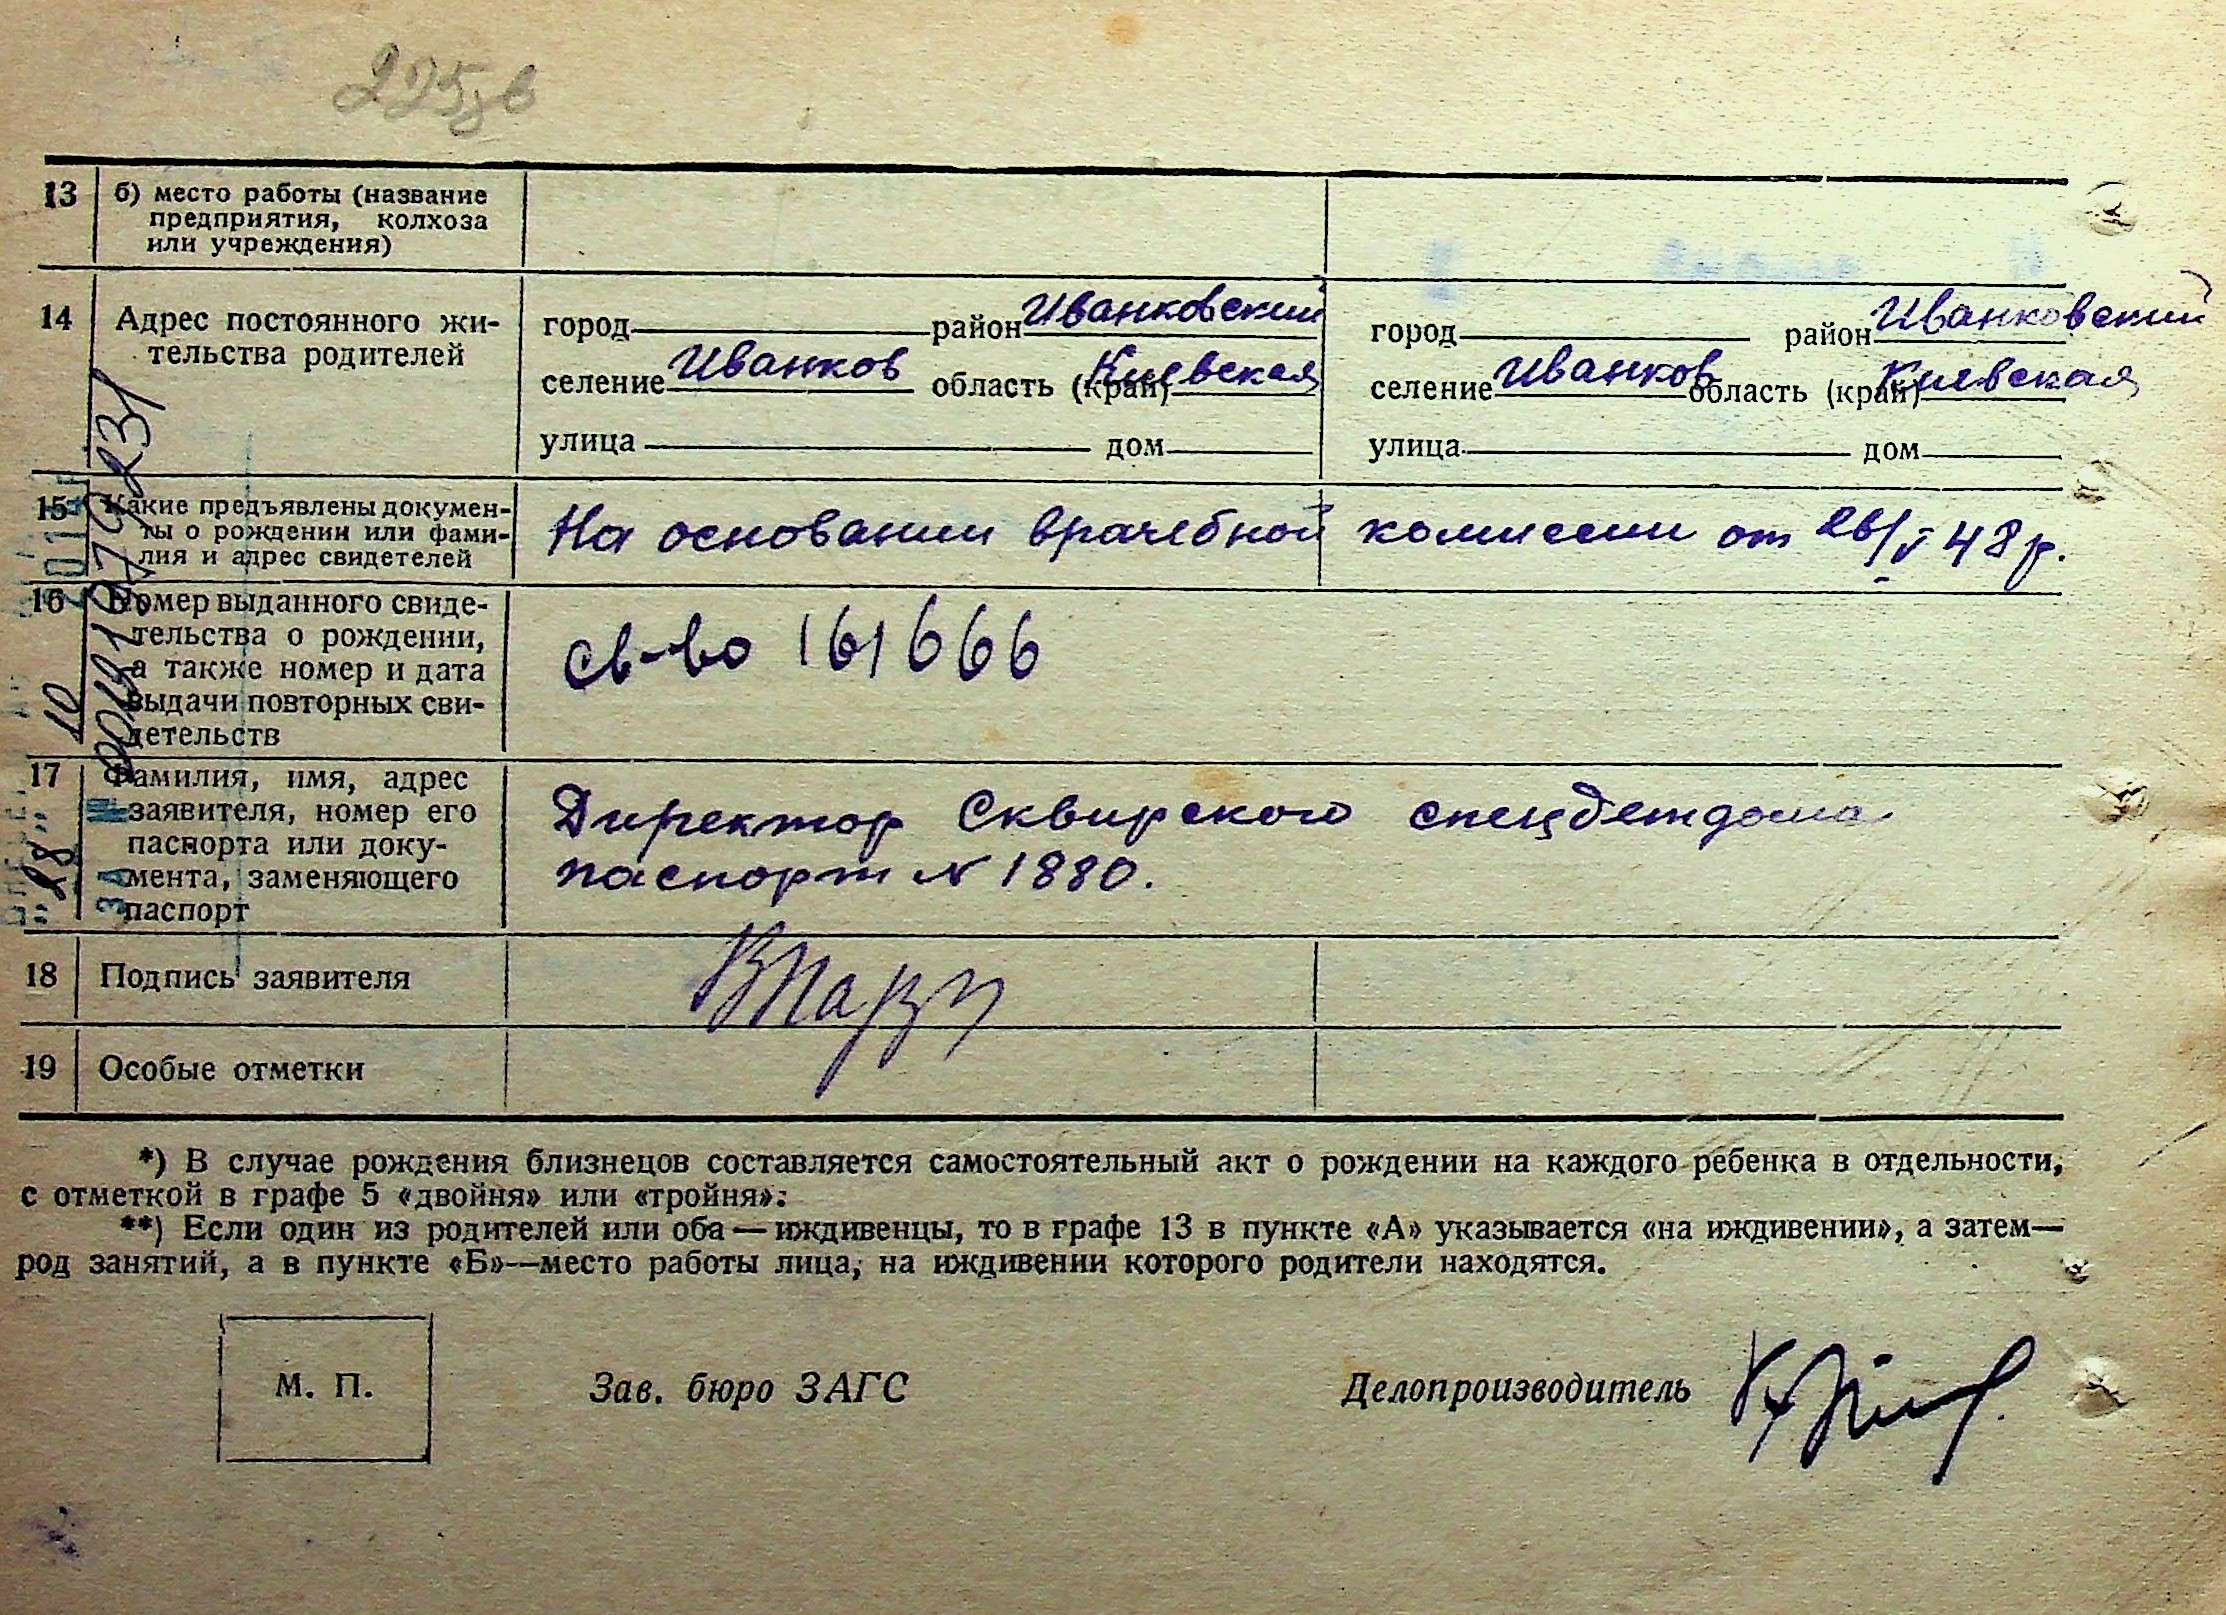 13 б) место работы (название
предприятия, колхоза
или учреждения)
14 Адрес постоянного жи-
тельства родителей
город район Иванковский
селение Иванков область (край) Киевская
улица дом
город район Иванковский
селение Иванков область (край) Киевская
улица дом
15 Какие предъявлены докумен-
ты о рождении или фами-
лия и адрес свидетелей
На основании врачебной комиссии от 26/V 48 р.
16 Номер выданного свиде-
тельства о рождении,
а также номер и дата
выдачи повторных сви-
детельств
св-во 161666
17 Фамилия, имя, адрес
заявителя, номер его
паспорта или доку-
мента, заменяющего
паспорт
Директор Сквирского спецдетдома
паспорт № 1880.
18 Подпись заявителя
19 Особые отметки
*) В случае рождения близнецов составляется самостоятельный акт о рождении на каждого ребенка в отдельности,
с отметкой в графе 5 «двойня» или «тройня».
**) Если один из родителей или оба — иждивенцы, то в графе 13 в пункте «А» указывается «на иждивении», а затем—
род занятий, а в пункте «Б»—место работы лица, на иждивении которого родители находятся.
М. П.
Зав. бюро ЗАГС
Делопроизводитель